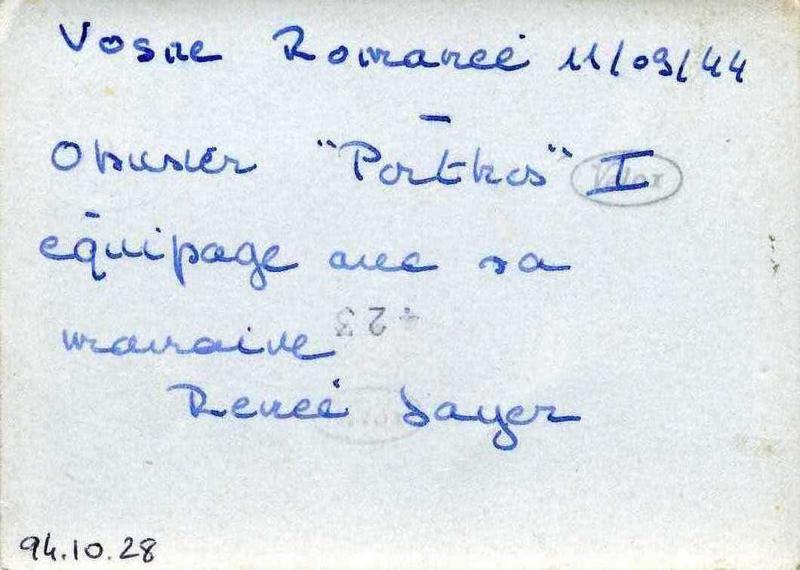 Vosne Romanée 11/09/44
Obusier "Porthos" I
équipage avec sa
marraine
423
Renée Sayer
94.10.28